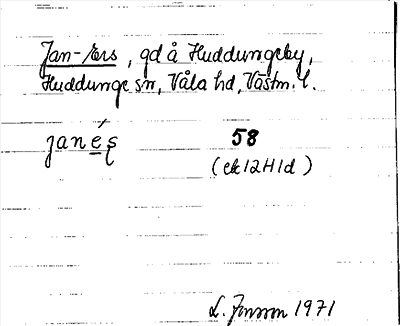 Jan-Ers, gd å Huddungeby,
Huddunge sn, Våla hd, Västm. l.
janés̨ 58
(ek 12H1d)
L. Jonson 1971